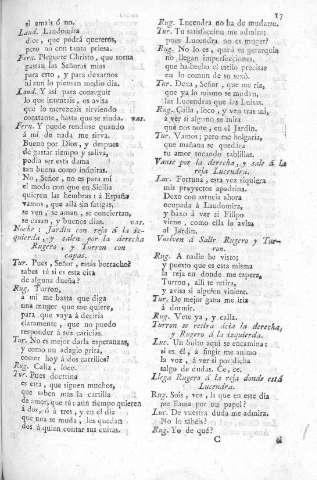 17
si amais ó no.
Laud. Laudomira
dice, que podrá quereros,
pero no con tanta priesa.
Fern. Pléguete Christo, que sorna
gastan las Señoras mias
para esto, y para dexarnos
ni aun lo piensan medio dia.
Laud. Y asi para conseguir
lo que intentais, es avisa
que lo merezcais sirviendo
constante, hasta que se rinda. vas.
Fern. Y puede rendirse quando
á mí de nada me sirva.
Bueno por Dios, y despues
de gastar tiempo y saliva,
podia ser esta dama
tan buena como infinitas.
No, Señor, no es para mí
el modo con que en Sicilia
quieren las hembras: á España
vamos, que allá sin fatigas,
se ven, se aman, se conciertan,
se casan, y buenos dias. vas.
Noche: Jardin con reja á la iz-
quierda, y salen por la derecha
Rugero, y Turron con
capas.
Tur. Pues, Señor, estás borracho?
sabes tú si es esta cita
de alguna dueña?
Rug. Turron,
á mí me basta que diga
una muger que me quiere,
para que vaya á decirla
claramente, que no puedo
responder á sus caricias.
Tur. No es mejor darla esperanzas,
y como un adagio grita,
comer hoy á dos carrillos?
Rug. Calla, loco.
Tur. Pues doctrina
es esta, que siguen muchos,
que saben mas la cartilla
de amor, que tú: aun tiempo quieren
á dos, ó á tres, y en el dia
que una se muda, les quedan
dos á quien contar sus cuitas.
Rug. Lucendra no ha de mudarse.
Tur. Tu satisfaccion me admira:
pues Lucendra no es muger?
Rug. No lo es, que á su gerarquía
no llegan imperfecciones,
que ha hecho el estilo precisas
en lo comun de su sexô.
Tur. Dexa, Señor, que me ria,
que ya lo mismo se mudan,
las Lucendras que las Luisas.
Rug. Calla, loco, y ven tras mí,
á ver si alguno se mira
que nos note, en el Jardin.
Tur. Vamos; pero me holgaria,
que mañana se quedára
tu amor tocando tablillas.
Vanse por la derecha, y sale á la
reja Lucendra.
Luc. Fortuna, esta vez siquiera
mis proyectos apadrina.
Dexo con astucia ahora
ocupada á Laudomira,
y baxo á ver si Filipo
viene, como ella lo avisa
al Jardin.
Vuelven á Salir Rugero y Tur-
ron.
Rug. A nadie he visto;
y puesto que es esta misma
la reja en donde me espera,
Turron, allí te retira,
y avisa si alguien viniere.
Tur. De mejor gana me iria
á dormir.
Rug. Vete ya, y calla.
Turron se retira ácia la derecha,
y Rugero á la izquierda.
Luc. Un bulto aquí se encamina:
si es él, á fingir me animo
la voz, á ver si por dicha
salgo de dudas. Ce, ce.
Llega Rugero á la reja donde está
Lucendra.
Rug. Sois, vos, la que en este dia
me llama por un papel?
Luc. De vuestra duda me admira.
No lo sabeis?
Rug. Yo de qué?
C